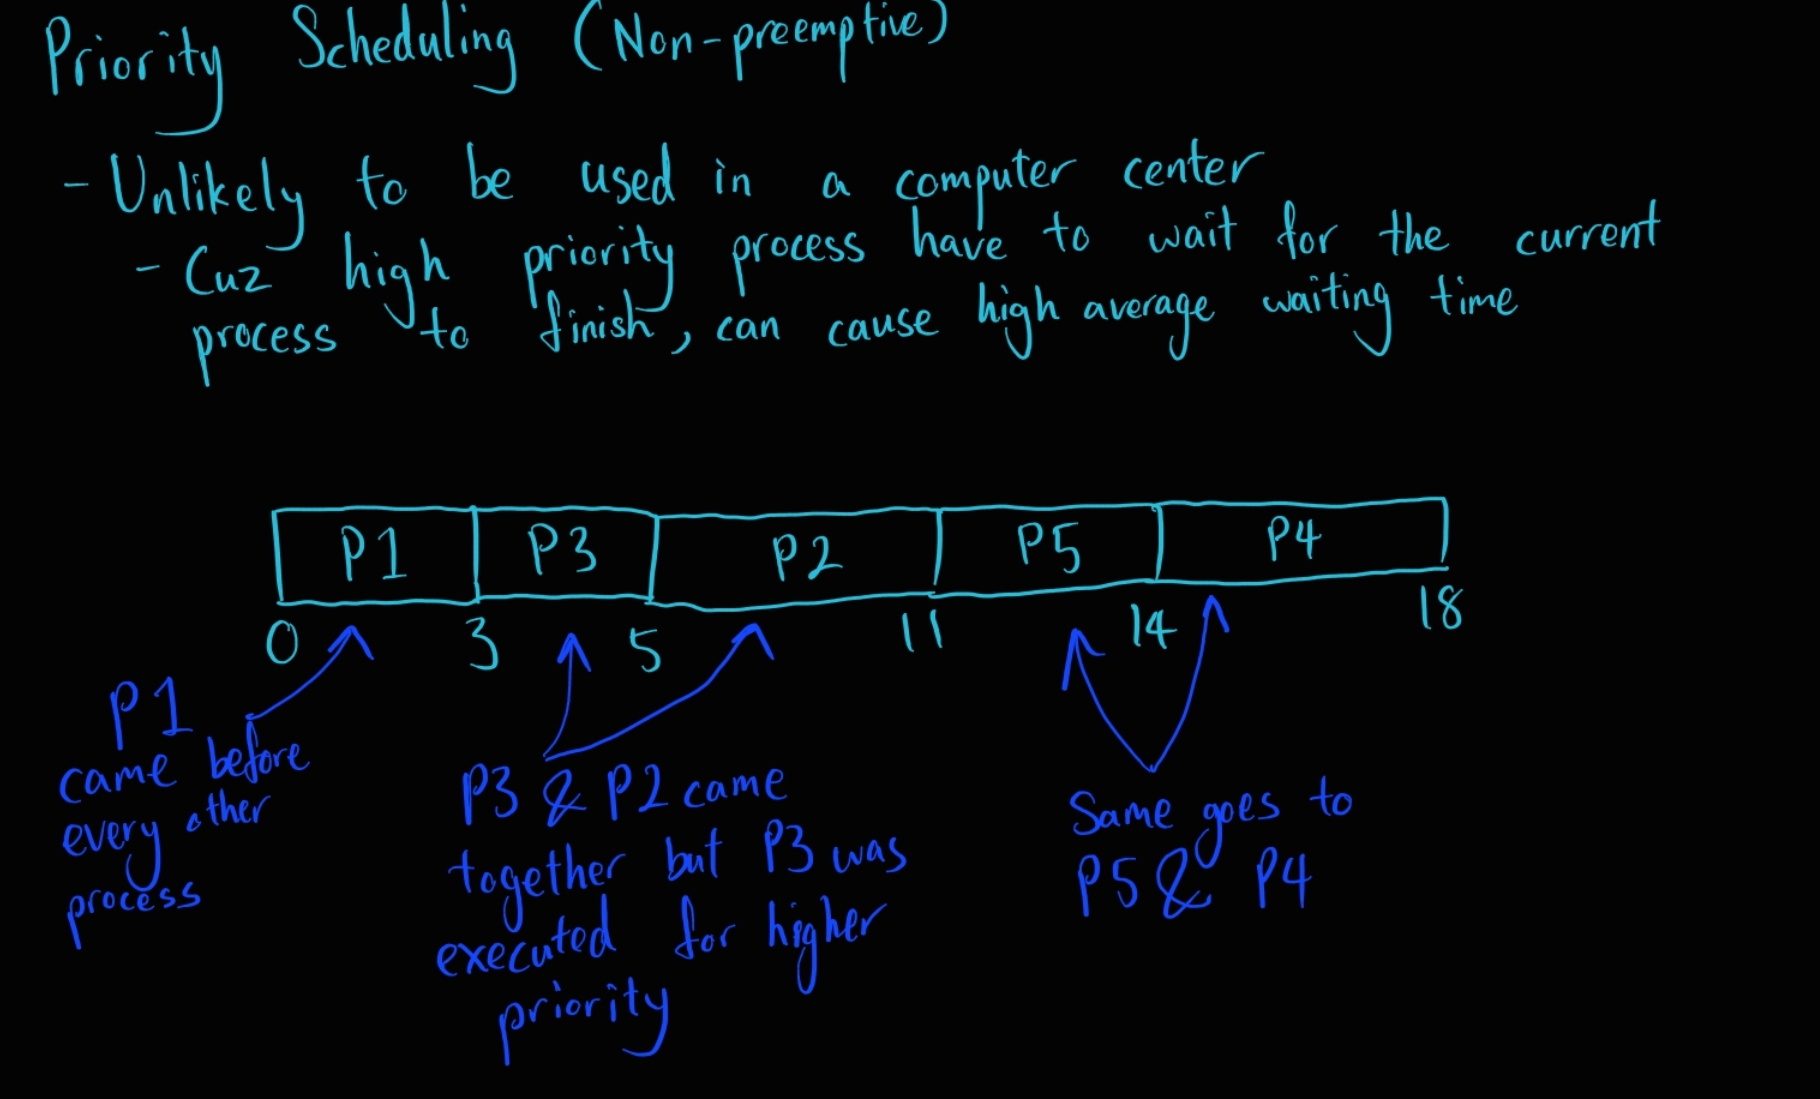 Priority Scheduling (Non-preemptive)
- Unlikely to be used in a computer center
- Cuz high priority process have to wait for the current
process to finish, can cause high average waiting time
P1 P3 P2 P5 P4
0 3 5 11 14 18
P1
came before
every other
process
P3 & P2 came
together but P3 was
executed for higher
priority
Same goes to
P5 & P4